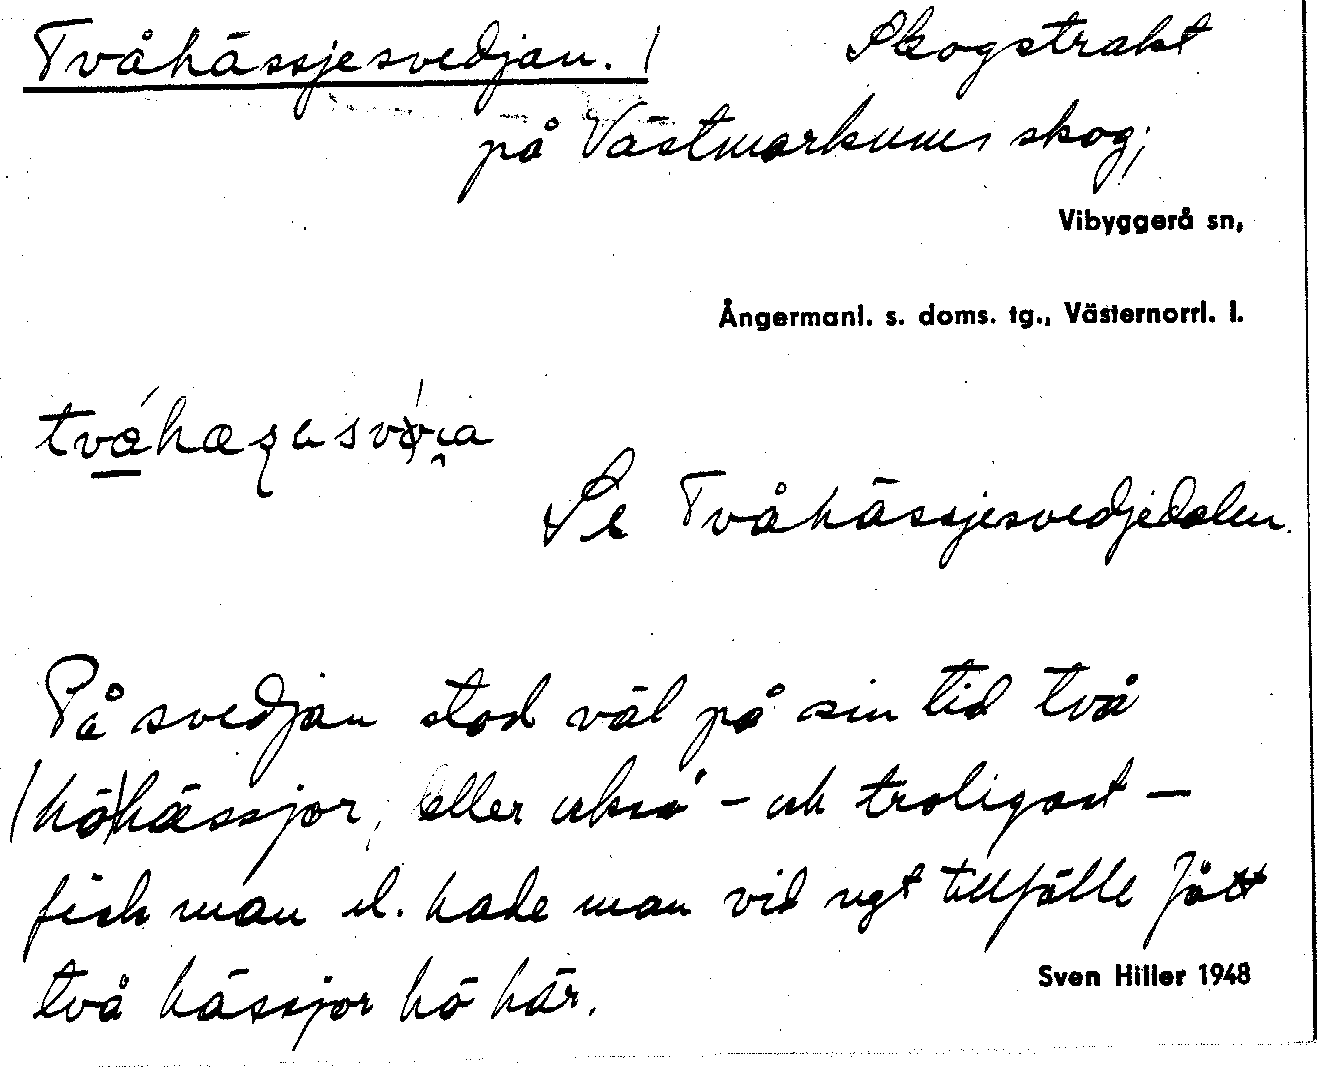 Tvåhässjesvedjan. / Skogstrakt
på Västmarkums skog;
Vibyggerå sn,
Ångermanl. s. doms. tg., Västernorrl. l.
Se Tvåhässjesvedjedalen.
På svedjan stod väl på sin tid två
(hö)hässjor, eller också - och troligast -
fick man el. hade man vid ngt tillfälle fått
två hässjor hö här.
Sven Hiller 1948